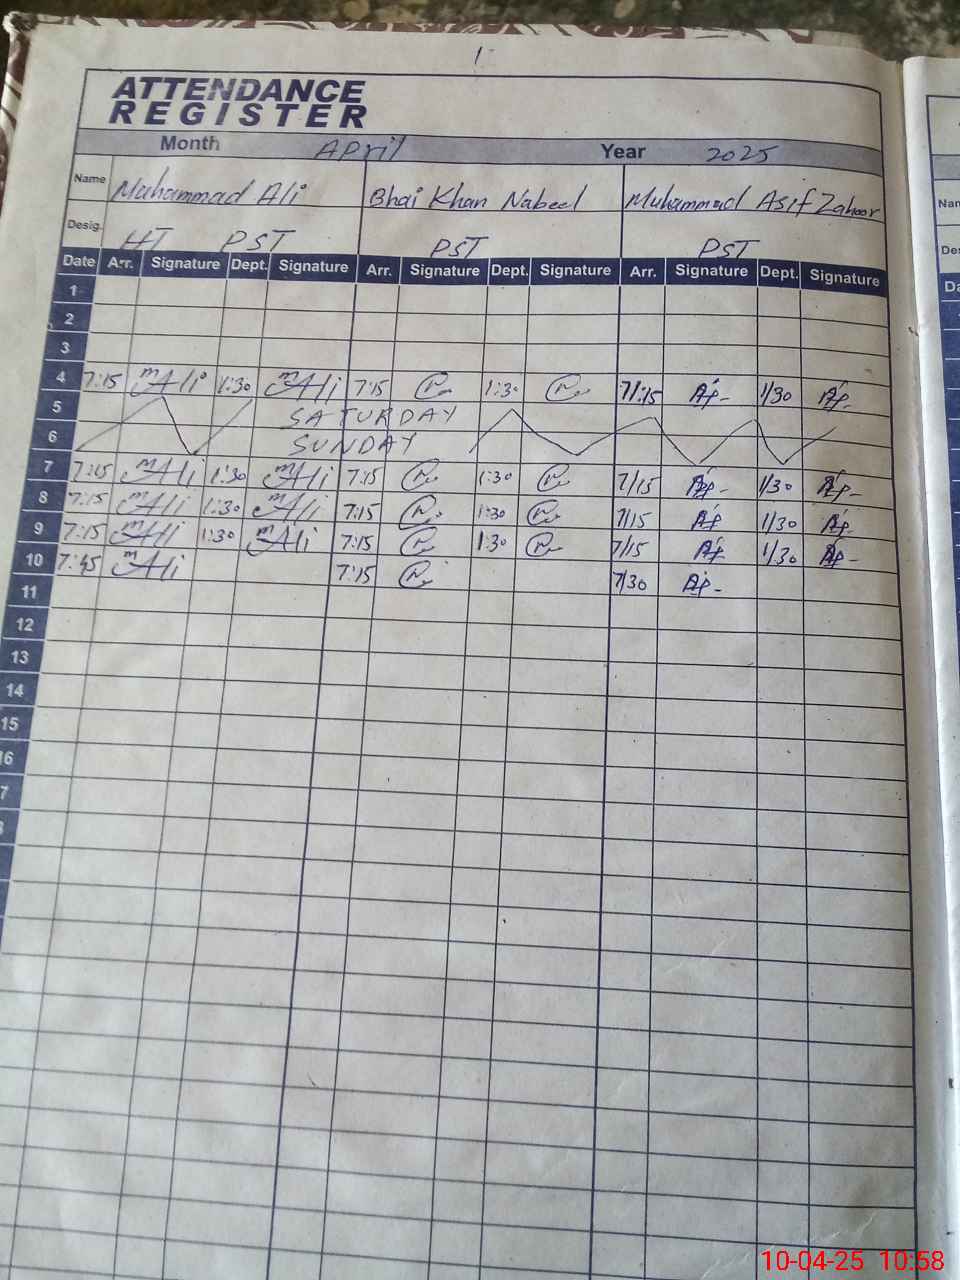 1
ATTENDANCE
REGISTER
Month April Year 2025
Name Muhammad Ali Bhai Khan Nabeel Muhammad Asif Zahoor
Desig. HT PST PST PST
Date Arr. Signature Dept. Signature Arr. Signature Dept. Signature Arr. Signature Dept. Signature
1
2
3
4 7:15 mAli 1:30 mAli 7:15 1:30 7/:15 1/30
5 SATURDAY
6 SUNDAY
7 7:15 mAli 1:30 mAli 7:15 1:30 7/15 1/30
8 7:15 mAli 1:30 mAli 7:15 1:30 7/15 1/30
9 7:15 mAli 1:30 mAli 7:15 1:30 7/15 1/30
10 7:45 mAli 7:15 7/30
11
12
13
14
15
16
7
10-04-25 10:58